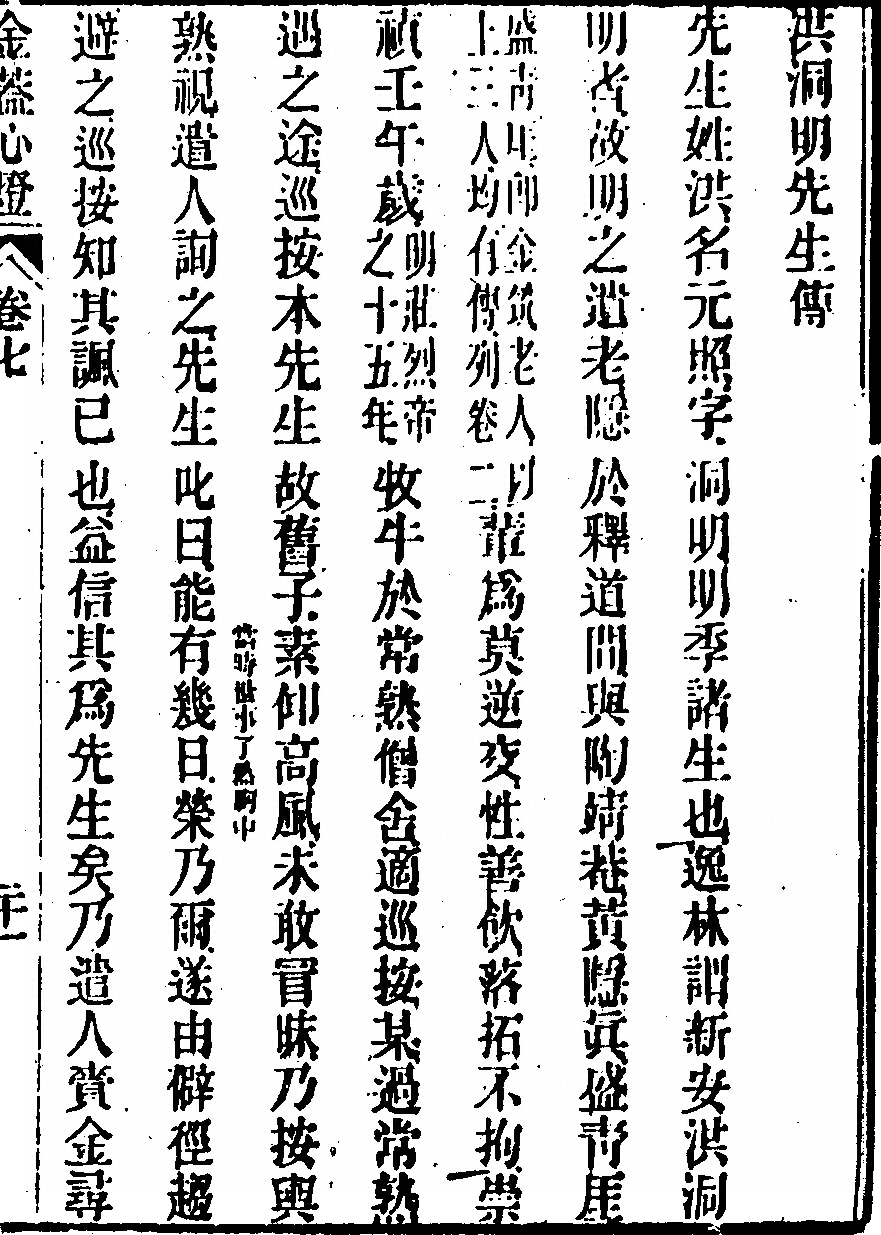 洪洞明先生傳
先生姓洪名元照字洞明明季諸生也逸林謂新安洪洞
明者故明之遺老隱於釋道間與陶靖菴黃隱眞盛靑厓
盛靑厓卽金筑老人以
上三人均有傳列卷二
輩爲莫逆交性善飮落拓不拘崇
禎壬午歲
明莊烈帝
之十五年
牧牛於常熟僧舍適巡按某過常熟
巡之途巡按本先生故舊子素仰高風未敢冒昧乃按輿
當時世事了然胸中
熟視遣人詢之先生叱曰能有幾日榮乃爾遂由僻徑趨
避之巡按知其諷已也益信其爲先生矣乃遣人賫金尋
金蓋心燈
卷七
二十一